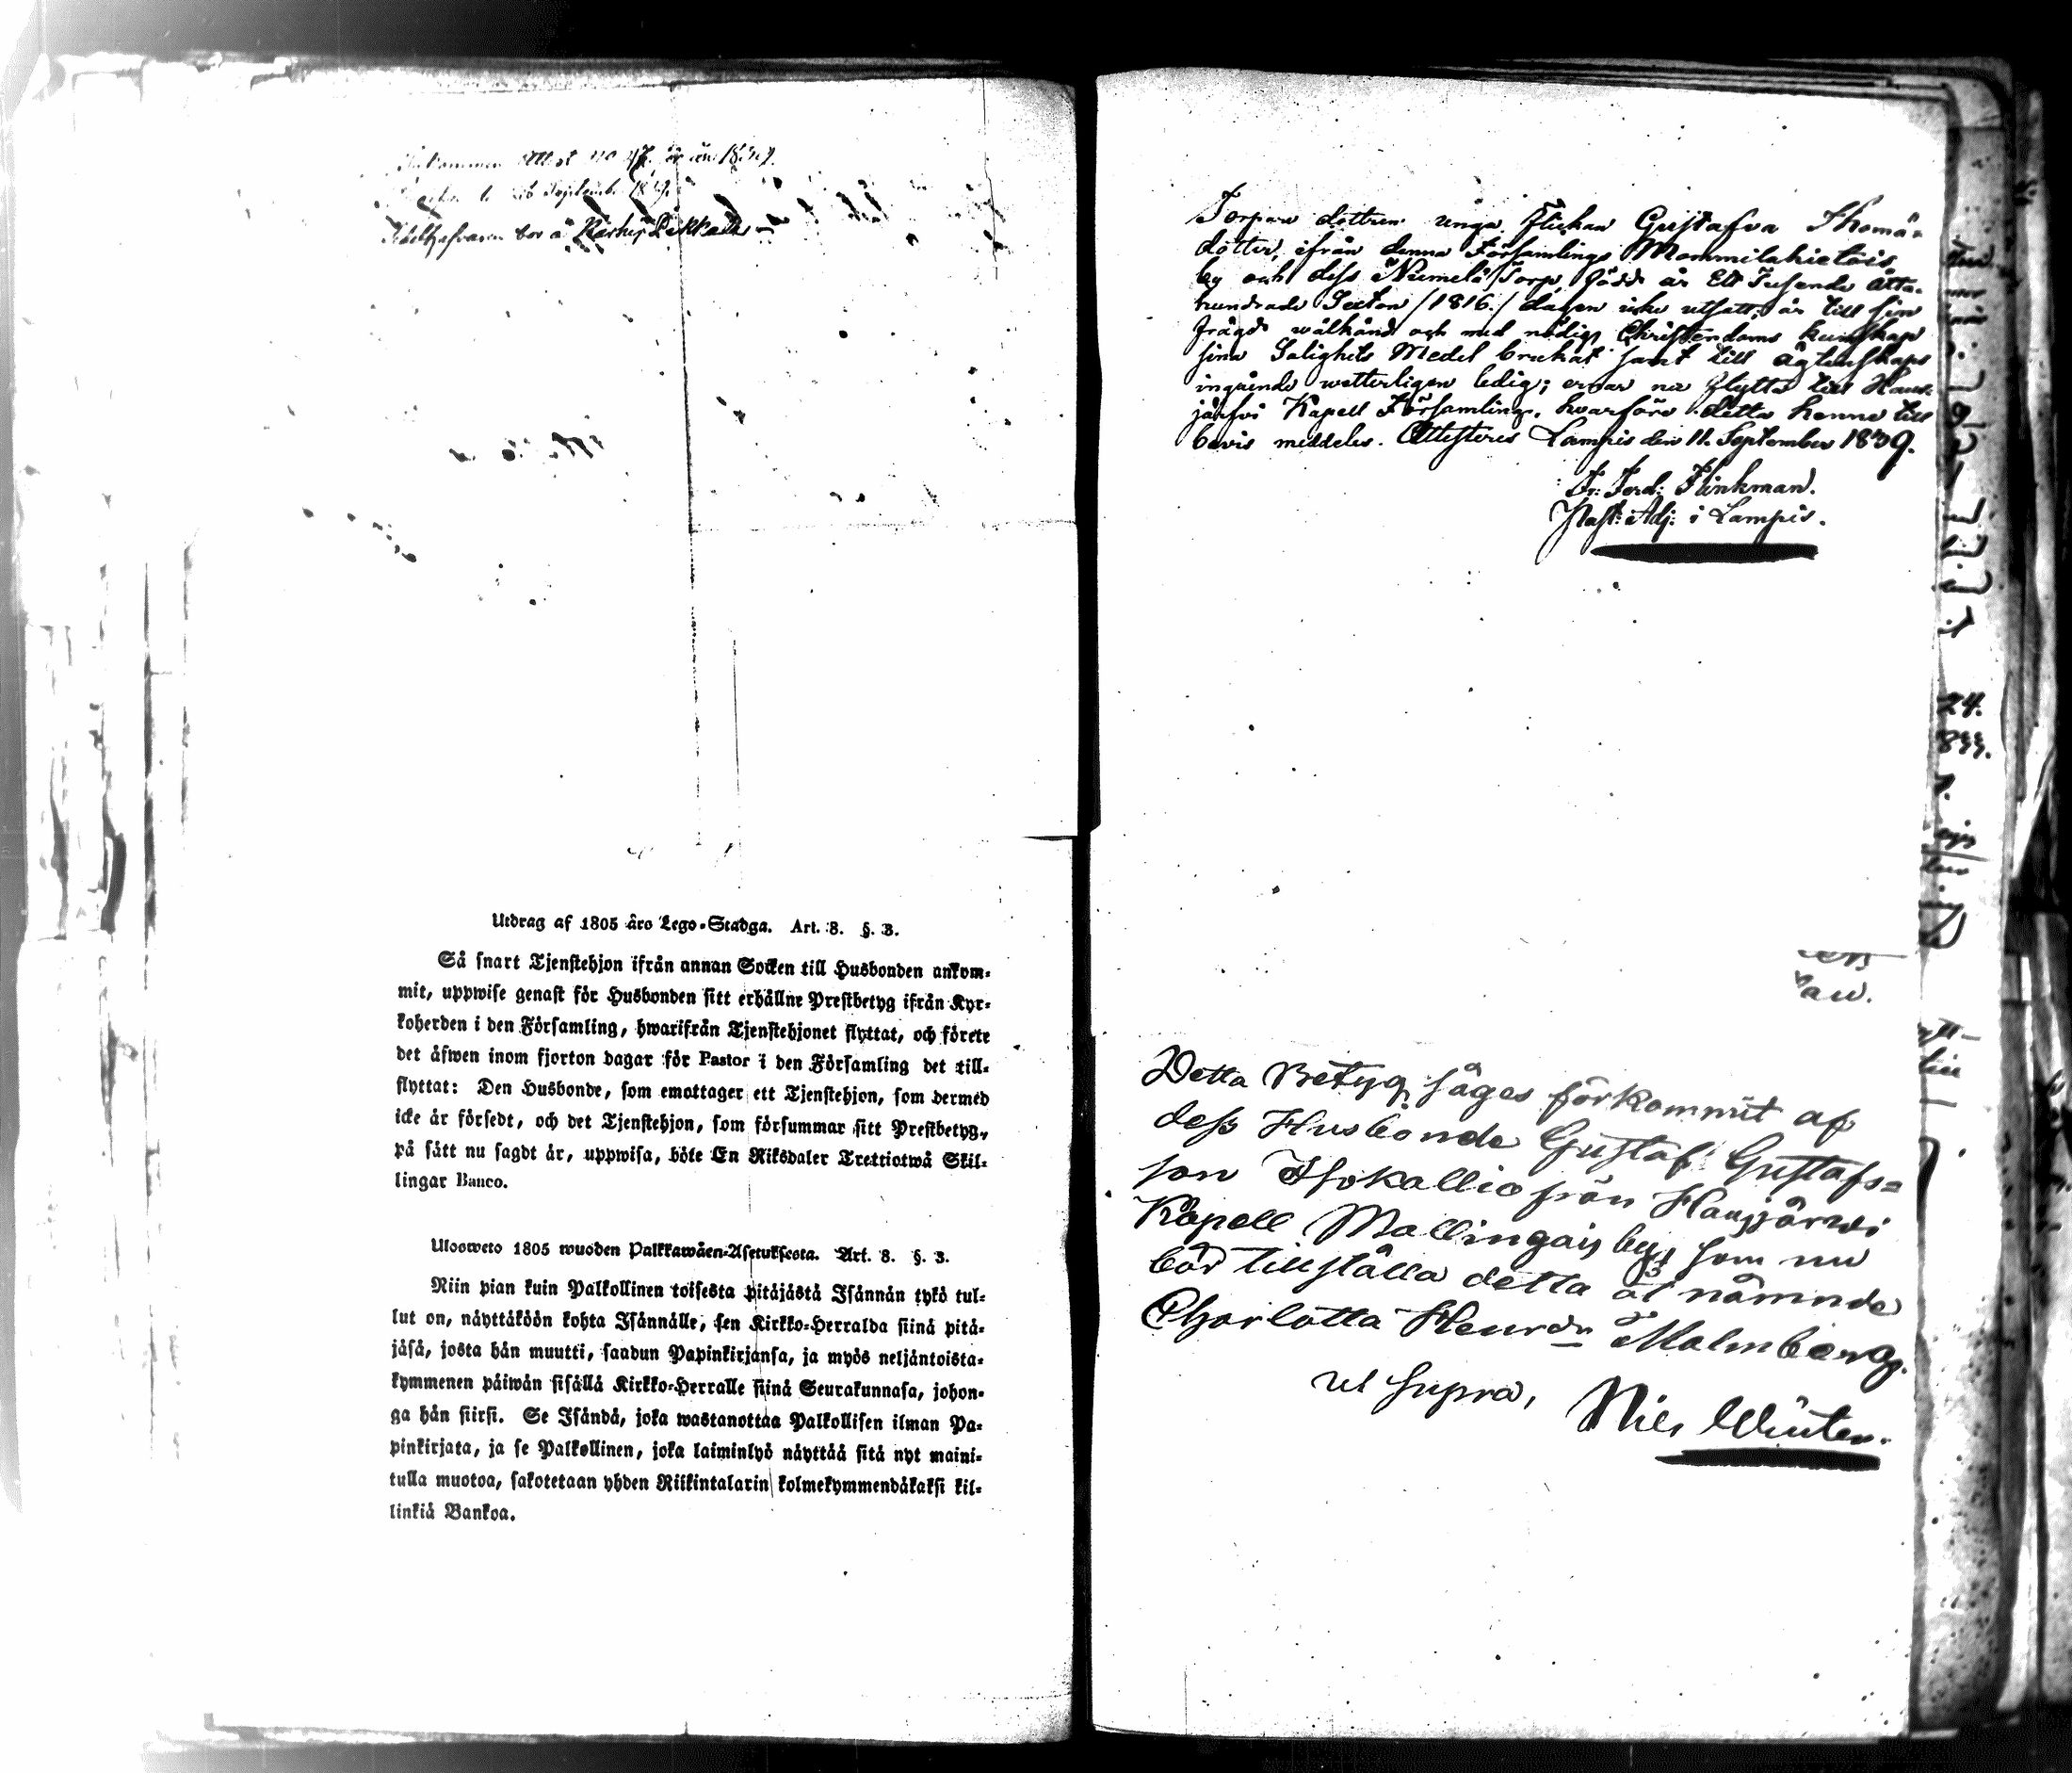 Inkommen Attest no 47. för år 1839.
September 1839.
Innehafvaren bor å
Utdrag af 1805 års Lego-Stadga. Art. 8. §. 3.
Så snart Tjenstehjon ifrån annan Socken till Husbonden ankom-
mit, uppwise genast för Husbonden sitt erhållne Prestbetyg ifrån Kyr-
koherden i den Församling, hwarifrån Tjenstehjonet flyttat, och förete
det äfwen inom fjorton dagar för Pastor i den Församling det till-
flyttat: Den Husbonde, som emottager ett Tjenstehjon, som dermed
icke är försedt, och det Tjenstehjon, som försummar sitt Prestbetyg,
på sätt nu sagdt är, uppwisa, böte En Riksdaler Trettiotwå Skil-
lingar Banco.
Ulosweto 1805 wuoden Palkkawäen-Asetuksesta. Art. 8. §. 3.
Niin pian kuin Palkollinen toisesta pitäjästä Isännän tykö tul-
lut on, näyttäköön kohta Isännälle, sen Kirkko-Herralda siinä pitä-
jäsä, josta hän muutti, saadun Papinkirjansa, ja myös neljäntoista-
kymmenen päiwän sisällä Kirkko-Herralle siinä Seurakunnasa, johon-
ga hän siirsi. Se Isändä, joka wastanottaa Palkollisen ilman Pa-
pinkirjata, ja se Palkollinen, joka laiminlyö näyttää sitä nyt maini-
tulla muotoa, sakotetaan yhden Riikintalarin kolmekymmendäkaksi kil-
linkiä Bankoa.
Torpare dottren unga Flickan Gustafva Thomæ
dotter, ifrån denna Församlings Mommilahietois
by och dess Numelä Torp, född år Ett Tusende åtta-
hundrade Sexton /1816./ dagen icke utsatt, är till sin
frägd wälkänd och med nödig Christendoms kunskap
sina Salighets Medel brukat samt till ägtenskaps
ingående wetterligen ledig; ernar nu flytta till Haus-
järfvi Kapell Församling, hvarföre detta henne till
bevis meddeles. Attesteres Lampis den 11. September 1839.
Fr: Ferd: Flinkman.
Past: Adj: i Lampis.
Detta Betyg säges förkommit af
dess Husbonde Gustaf Gustafs=
son Isokallio från Hausjärwi
Kapell Mallingais by, som nu
bör tillställa detta åt nämnde
Charlotta Henrdr Malmberg.
ut supra,
Nils Winter.
24.